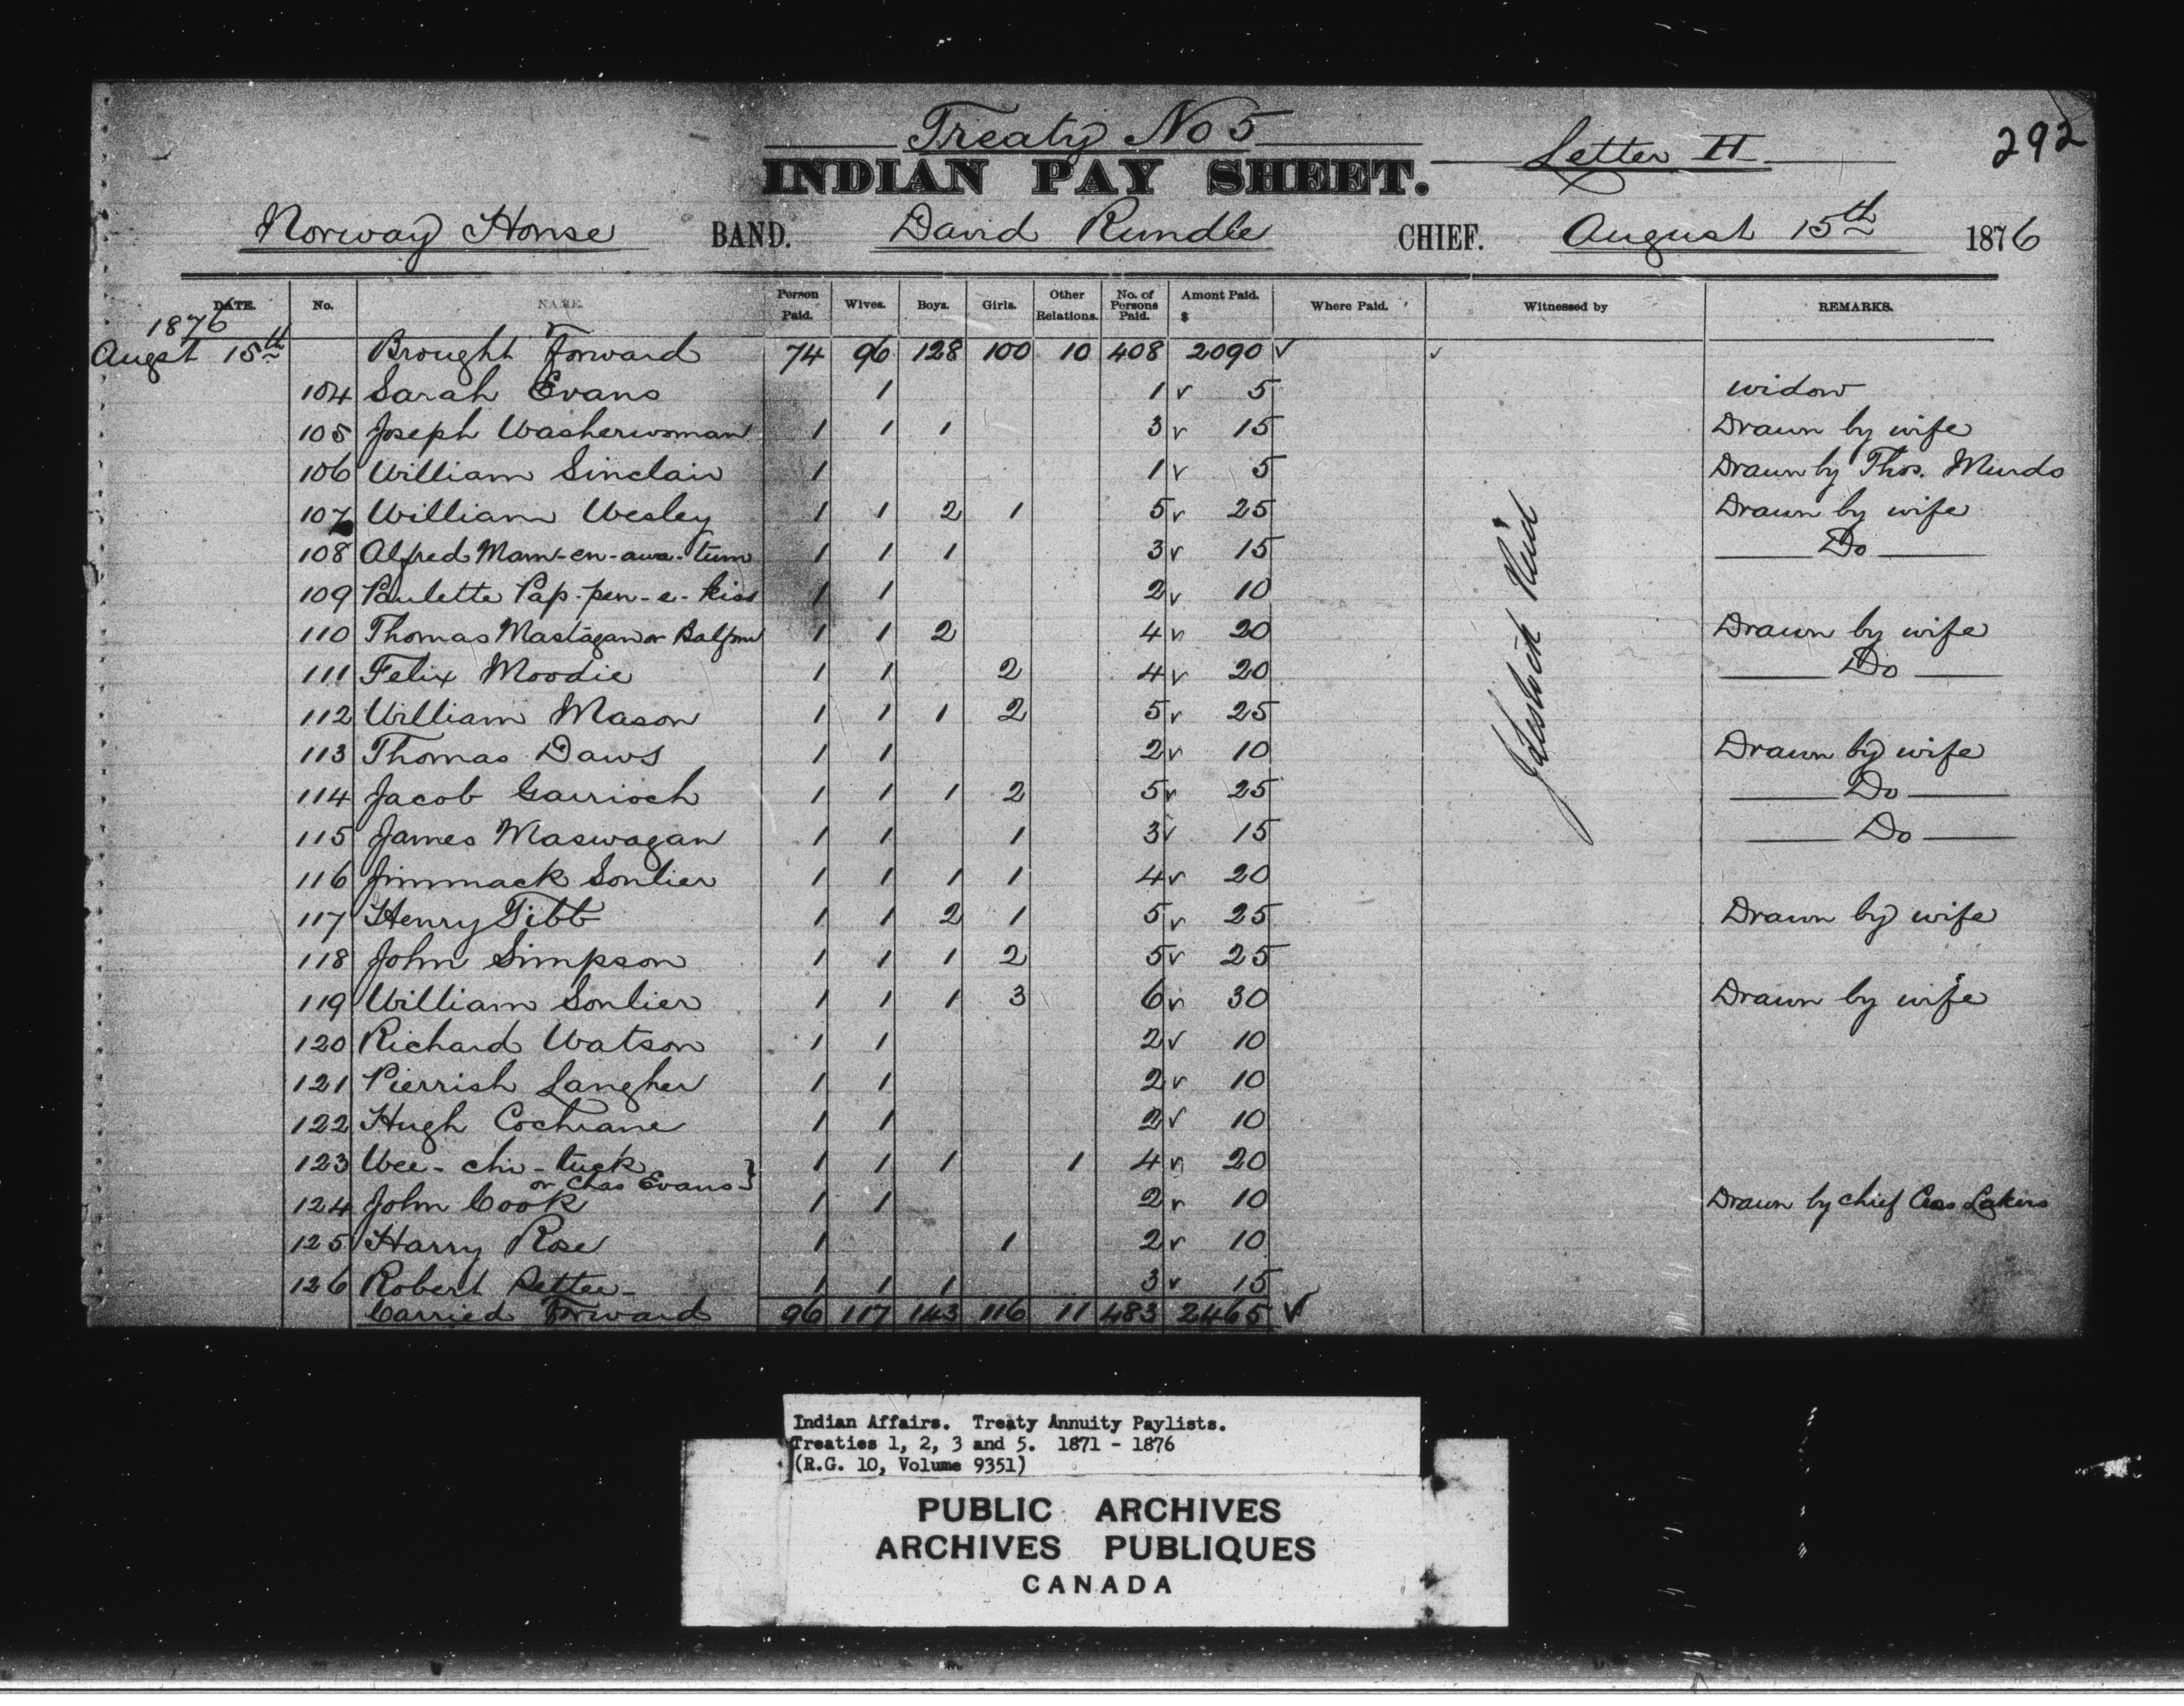 Treaty No 5
INDIAN PAY SHEET. Letter H 292
Norway House BAND. David Rundle CHIEF. August 15th 1876
DATE. No. NAME. Person Paid. Wives. Boys. Girls. Other Relations. No. of Persons Paid. Amont Paid. $ Where Paid. Witnessed by REMARKS.
1876
Augst 15th Brought Forward 74 96 128 100 10 408 2090 ✓ ✓
104 Sarah Evans 1 1 ✓ 5 widow
105 Joseph Washerwoman 1 1 1 3 ✓ 15 Drawn by wife
106 William Sinclair 1 1 ✓ 5 Drawn by Thos.
107 William Wesley 1 1 2 1 5 ✓ 25 Drawn by wife
108 Alfred Mam-en-awa-tum 1 1 1 3 ✓ 15 Do
109 Paulette Pap-pen-e-kiss 1 1 2 ✓ 10
110 Thomas Mastagan or Balfour 1 1 2 4 ✓ 20 Drawn by wife
111 Felix Moodie 1 1 2 4 ✓ 20 Do
112 William Mason 1 1 1 2 5 ✓ 25
113 Thomas Daws 1 1 2 ✓ 10 Drawn by wife
114 Jacob Garrioch 1 1 1 2 5 ✓ 25 Do
115 James Maswagan 1 1 1 3 ✓ 15 Do
116 Jimmack Sonlier 1 1 1 1 4 ✓ 20
117 Henry Tibb 1 1 2 1 5 ✓ 25 Drawn by wife
118 John Simpson 1 1 1 2 5 ✓ 25
119 William Sonlier 1 1 1 3 6 ✓ 30 Drawn by wife
120 Richard Watson 1 1 2 ✓ 10
121 Pierrish Langher 1 1 2 ✓ 10
122 Hugh Cochrane 1 1 2 ✓ 10
123 Wee-chi-tuck 1 1 1 1 4 ✓ 20
or Chas Evans }
124 John Cook 1 1 2 ✓ 10 Drawn by chief
125 Harry Rose 1 1 2 ✓ 10
126 Robert Setter 1 1 1 3 ✓ 15
Carried Forward 96 117 143 116 11 483 2465 ✓
Indian Affairs. Treaty Annuity Paylists.
Treaties 1, 2, 3 and 5. 1871 - 1876
(R.G. 10, Volume 9351)
PUBLIC ARCHIVES
ARCHIVES PUBLIQUES
CANADA